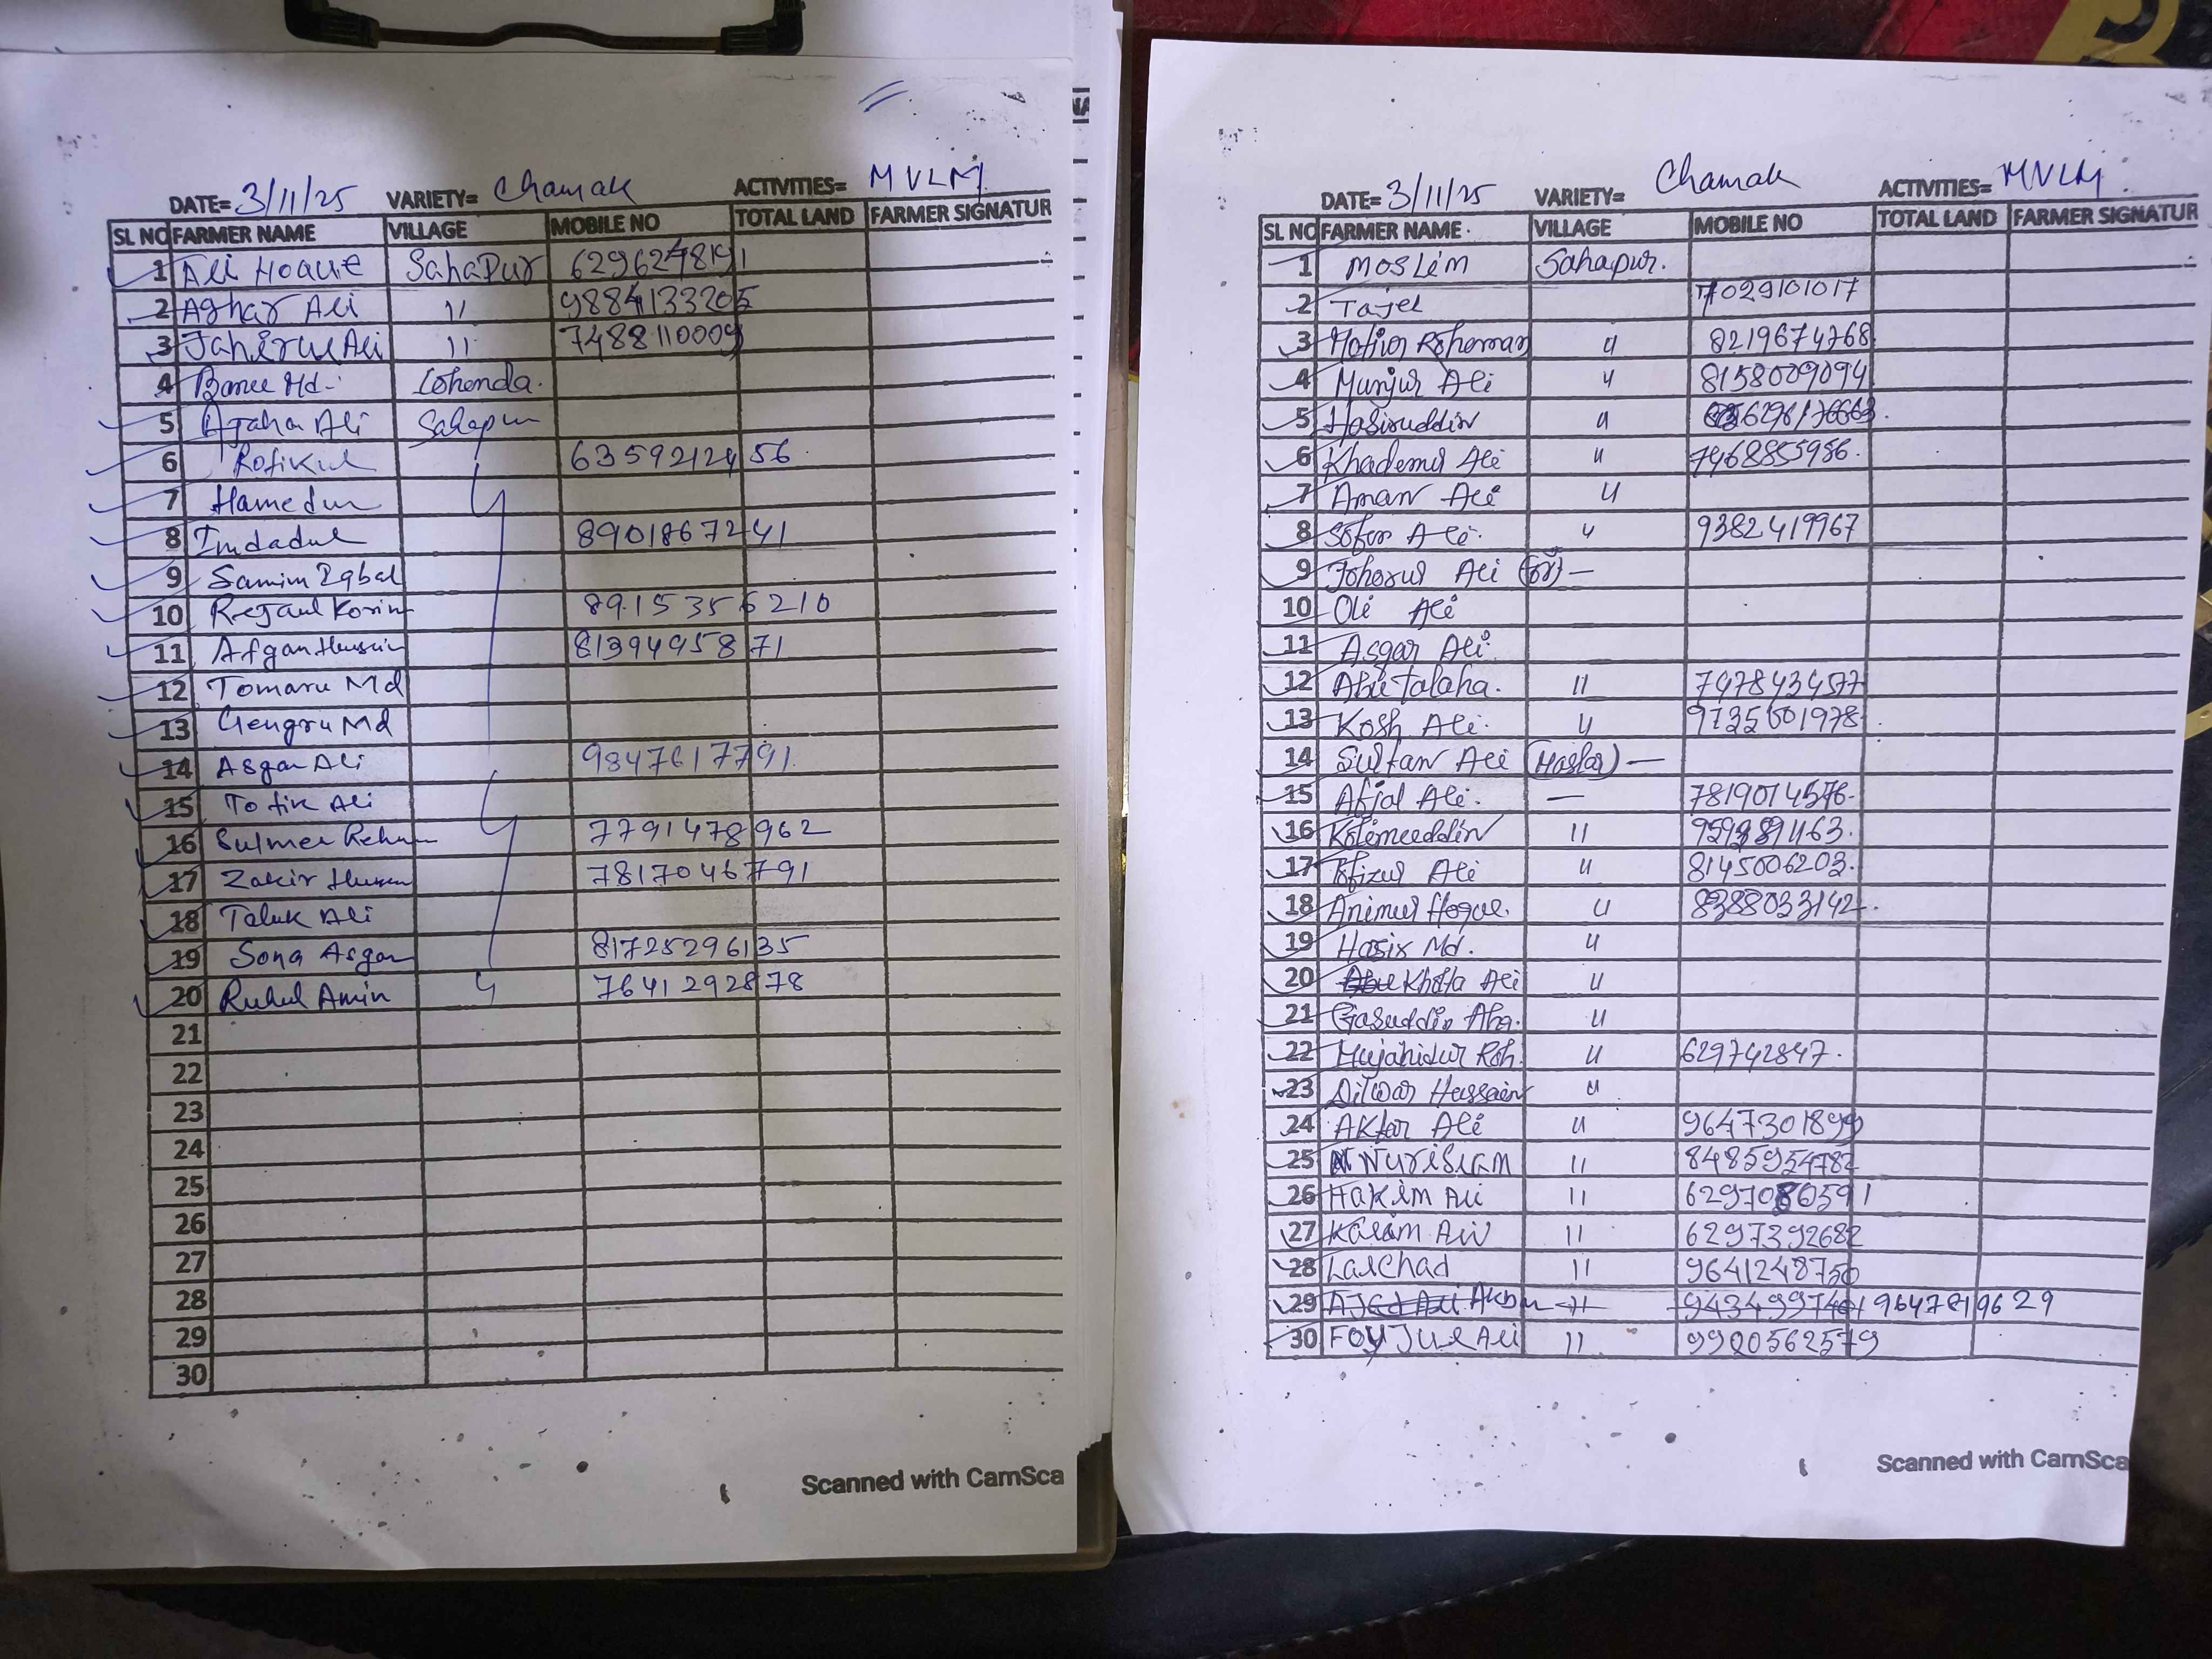 DATE= 3/11/25 VARIETY= Chamak ACTIVITIES= MVLM
SL NO FARMER NAME VILLAGE MOBILE NO TOTAL LAND FARMER SIGNATUR
1 Ali Hoque Sahapur 6296248191
2 Aghar Ali " 9884133205
3 Jahirul Ali " 7488110009
4 Md. Lohonda.
5 Ali Sahapur
6 Rofikul 6359212456
7 Hamedur
8 Imdadul 8901867241
9 Samim Iqbal
10 Rejaul Korim 8915356210
11 Afgan Hussain 8139495871
12 Tomaru Md
13 Gengru Md
14 Asgar Ali 9847617791
15 Tofik Ali
16 7791478962
17 Zakir 7817046791
18 Taluk Ali
19 Sona Asgar 81725296135
20 Ruhul Amin " 7641292878
21
22
23
24
25
26
27
28
29
30
Scanned with CamSca
DATE= 3/11/25 VARIETY= Chamak ACTIVITIES= MVLM
SL NO FARMER NAME VILLAGE MOBILE NO TOTAL LAND FARMER SIGNATUR
1 Moslim Sahapur.
2 Tajel 7029101017
3 Motior Rohoman " 8219674768
4 Munjur Ali " 8158009094
5 Hasiruddin "
6 Khademul Ali " 7468855986
7 Aman Ali "
8 Ali " 9382419967
9 Johorul Ali
10 Oli Ali
11 Asgar Ali
12 Abu Talaha. " 7478434577
13 Kosh Ali. "
14 Sultan Ali (Master)
15 Afjal Ali. — 7819014576
16 "
17 Ali " 8145006203
18 Animul Hoque. " 8388033142
19 Md. "
20 Ali "
21 "
22 Mujahidur Roh. " 629742847
23 Dilwar Hussain "
24 Aktar Ali " 9647301899
25 Nurislam " 8485954782
26 Hakim Ali "
27 Kalam " 6297392682
28 Lalchad " 9641248750
29 Akbar "
30 Foyjul Ali " 9900562579
Scanned with CamSca